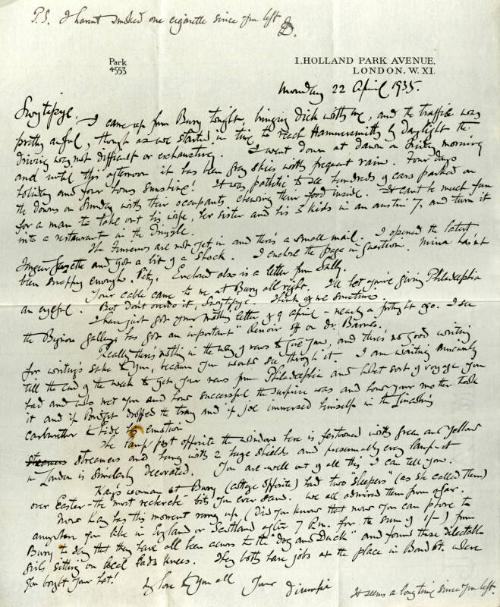 P.S. I havent smoked one cigarette since you left D.
Park
4553
1, HOLLAND PARK AVENUE,
LONDON. W. XI.
Monday 22 April 1935.
I came up from Bury tonight, bringing Dick with me, and the traffic was
pretty awful, though as we started in time to reach Hammersmith by Daylight the
driving was not difficult or exhausting. I went down at dawn on Friday morning
and until this afternoon it has been grey skies with frequent rain. Four days
holiday and four hours sunshine! It was pathetic to see hundreds of cars parked on
the downs on Sunday with their occupants chewing their food inside. It cant be much fun
for a man to take out his wife, her sister and his 3 kids in an austin 7, and turn it
into a restaurant in the drizzle.
The are not yet in and there's a small mail. I opened the latest
Gazette and got a bit of a shock. I enclose the page in question. hasnt
been snappy enough. Pity. Enclosed also is a letter from Sally.
Your cable came to me at Bury all right. I'll bet you're giving Philadelphia
an eyeful. But dont overdo it, Think of me sometimes.
I have just got your mother's letter of 9 April - nearly a fortnight ago. I see
the Bignou gallery has got an important Renoir off on Dr. Barnes.
Really there's nothing in the way of news to give you, and there's no good writing
for writing's sake to you, because you would see through it. I am waiting anxiously
till the end of the week to get your news from Philadelphia and what sort of voyage you
had and who met you and how successful the surprise was and how your mother took
it and if dropped the tray and if Joe immersed himself in the Lincoln's
carburetter to hide his emotion.
The lamp post opposite the windows here is festooned with green and yellow
streamers and hung with 2 huge shields and presumably every lamp post
in London is similarly decorated. You are well out of all this, I can tell you.
Kay's woman at Bury (cottage opposite) had two sleepers (as she called them)
over Easter - the most bits you ever saw. We all admired them from afar.
Now Kay has this moment rung up. Did you know that now you can phone to
anywhere you like in England or Scotland after 7 P.M. for the sum of 1/-) from
Bury to say that they have all been across to the "Dog and Duck" and found these delectable
girls sitting on local lads' knees. They both have jobs at the place in Bond St. where
you bought your hat!
My love to you all Yours
It seems a long time since you left.